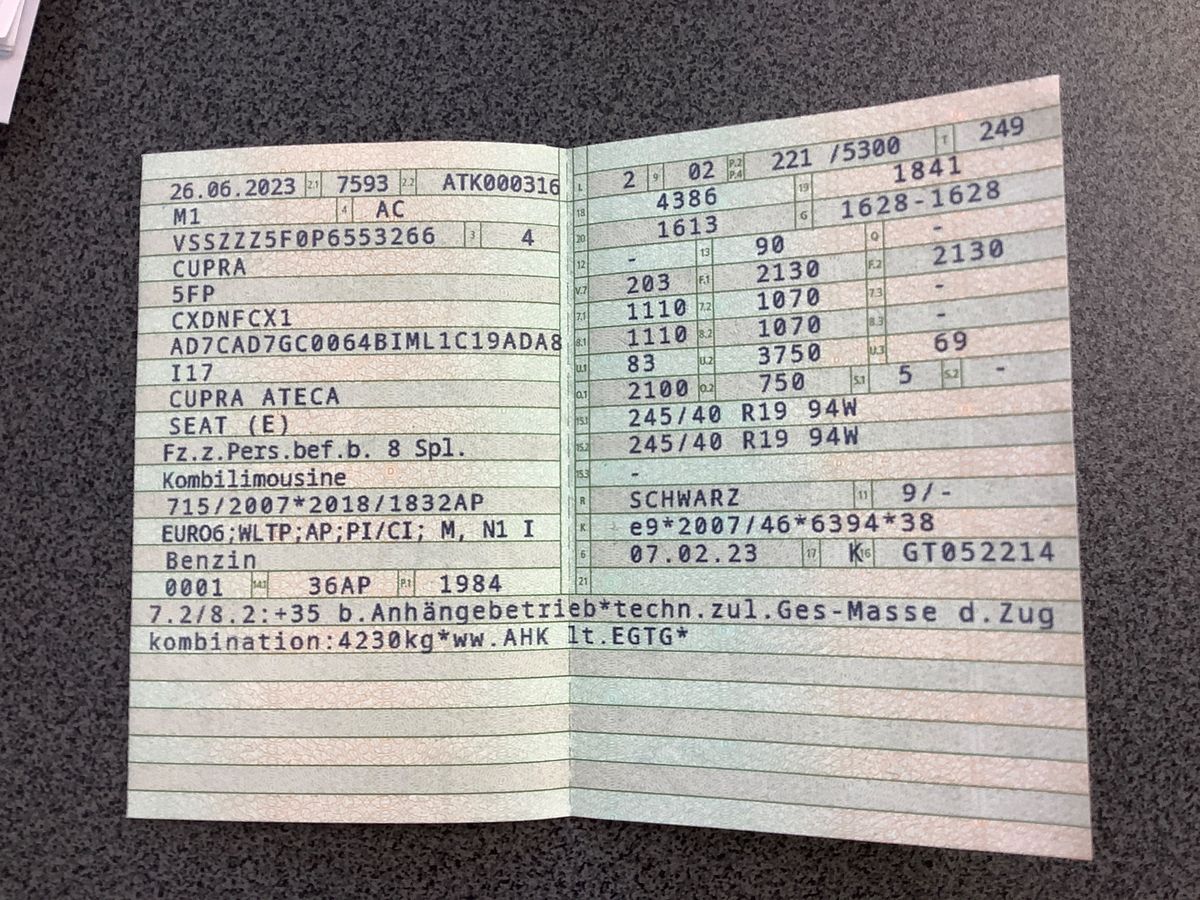 26.06.2023 2.1 7593 2.2 ATK000316
M1 4 AC
VSSZZZ5F0P6553266 3 4
CUPRA
5FP
CXDNFCX1
AD7CAD7GC0064BIML1C19ADA8
I17
CUPRA ATECA
SEAT (E)
Fz.z.Pers.bef.b. 8 Spl.
Kombilimousine
715/2007*2018/1832AP
EURO6;WLTP;AP;PI/CI; M, N1 I
Benzin
0001 14.1 36AP P.1 1984
L 2 9 02 P.2 P.4 221 /5300 T 249
18 4386 19 1841
20 1613 G 1628-1628
12 - 13 90 Q -
V.7 203 F.1 2130 F.2 2130
7.1 1110 7.2 1070 7.3 -
8.1 1110 8.2 1070 8.3 -
U.1 83 U.2 3750 U.3 69
O.1 2100 O.2 750 S.1 5 S.2 -
15.1 245/40 R19 94W
15.2 245/40 R19 94W
15.3 -
R SCHWARZ 11 9/-
K e9*2007/46*6394*38
6 07.02.23 17 K 16 GT052214
21
7.2/8.2:+35 b.Anhängebetrieb*techn.zul.Ges-Masse d.Zug
kombination:4230kg*ww.AHK lt.EGTG*